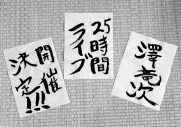 澤竜次
25時間
ライブ
開催
決定!!!